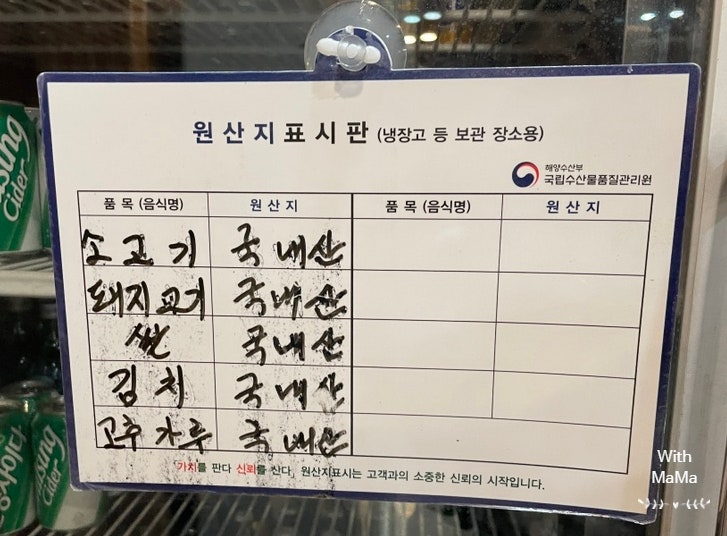 원산지표시판 (냉장고 등 보관 장소용)
해양수산부
국립수산물품질관리원
품 목 (음식명) 원 산 지 품 목 (음식명) 원 산 지
소고기 국내산
돼지고기 국내산
쌀 국내산
김치 국내산
고추가루 국내산
가치를 판다 신뢰를 산다. 원산지표시는 고객과의 소중한 신뢰의 시작입니다.
Cider
사이다
With
MaMa